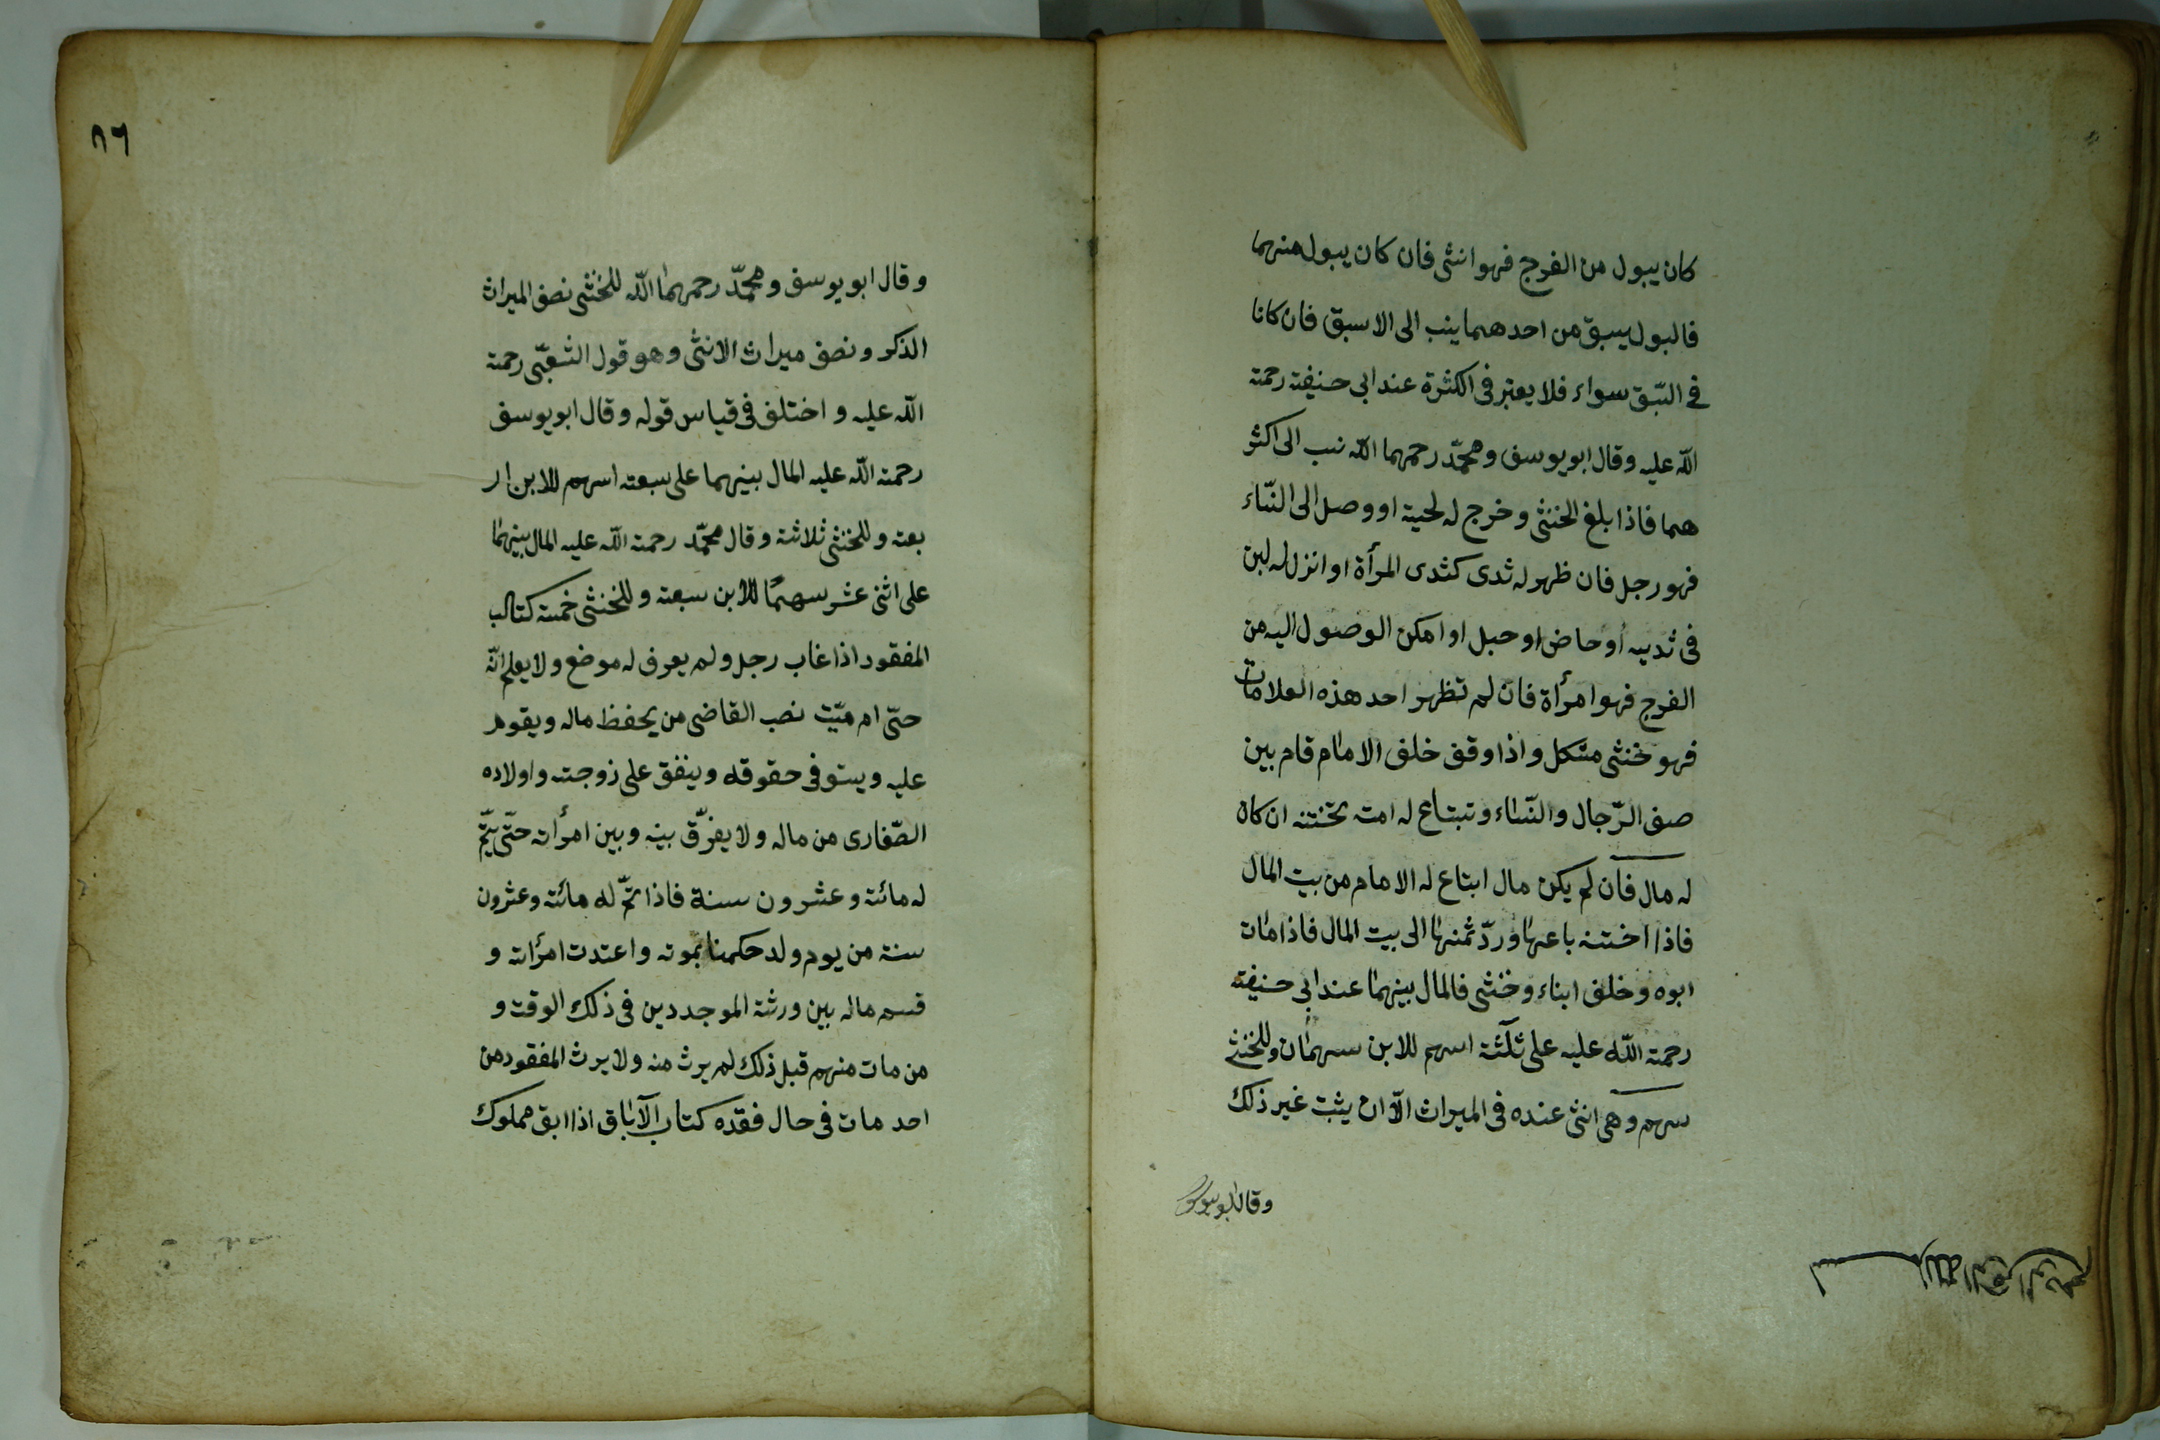 كان يبول من الفرج فهو انثى فان كان يبول منهما
فالبول يسبق من احدهما ينسب الى الاسبق فان كانا
في السّبق سواء فلا يعتبر فى الكثرة عند ابى حنيفة رحمة
اللّه عليه وقال ابو يوسف ومحمّد رحمهما اللّه نسب الى اكثر
هما فاذا بلغ الخنثى وخرج له لحية او وصل الى النّساء
فهو رجل فان ظهر له ثدى كثدى المرأة او انزل له لبن
فى ثدييه أو حاض او حبل او امكن الوصول اليه من
الفرج فهو امرأة فان لم تظهر احد هذه العلامات
فهو خنثى مشكل واذا وقف خلف الامام قام بين
صف الرّجال والنّساء وتبتاع له امة تختنه ان كان
له مال فان لم يكن مال ابتاع له الامام من بيت المال
فاذا اختنه باعها وردّ ثمنها الى بيت المال فاذا مات
ابوه وخلف ابناء وخنثى فالمال بينهما عند ابي حنيفة
رحمة اللّه عليه على ثلثة اسهم للابن سهمان وللخنثى
سهم وهى انثى عنده فى الميراث الّا ان يثبت غير ذلك
وقال ابو يوسف
بسم الله الرحمن الرحيم
٨٦
وقال ابو يوسف ومحمّد رحمهما اللّه للخنثى نصف الميراث
الذكر ونصف ميراث الانثى وهو قول الشّعبّى رحمة
اللّه عليه واختلف فى قياس قوله وقال ابو يوسف
رحمة اللّه عليه المال بينهما على سبعة اسهم للابن ار
بعة وللخنثى ثلاثة وقال محمّد رحمة اللّه عليه المال بينهما
على اثنى عشر سهمًا للابن سبعة وللخنثى خمسة كتاب
المفقود اذا غاب رجل ولم يعرف له موضع ولا يعلم انّه
حتّى ام ميّت نصب القاضى من يحفظ ماله ويقوم
عليه ويستوفى حقوقه وينفق على زوجته واولاده
الصّغارى من ماله ولا يفرّق بينه وبين امرأته حتّى يتّم
له مائة وعشرون سنة فاذا تمّ له مائة وعشرون
سنة من يوم ولد حكمنا بموته واعتدت امرأته و
قسم ماله بين ورثة الموجددين فى ذلك الوقت و
من مات منهم قبل ذلك لم يرث منه ولا يرث المفقود من
احد مات فى حال فقده كتاب الآباق اذا ابق مملوك